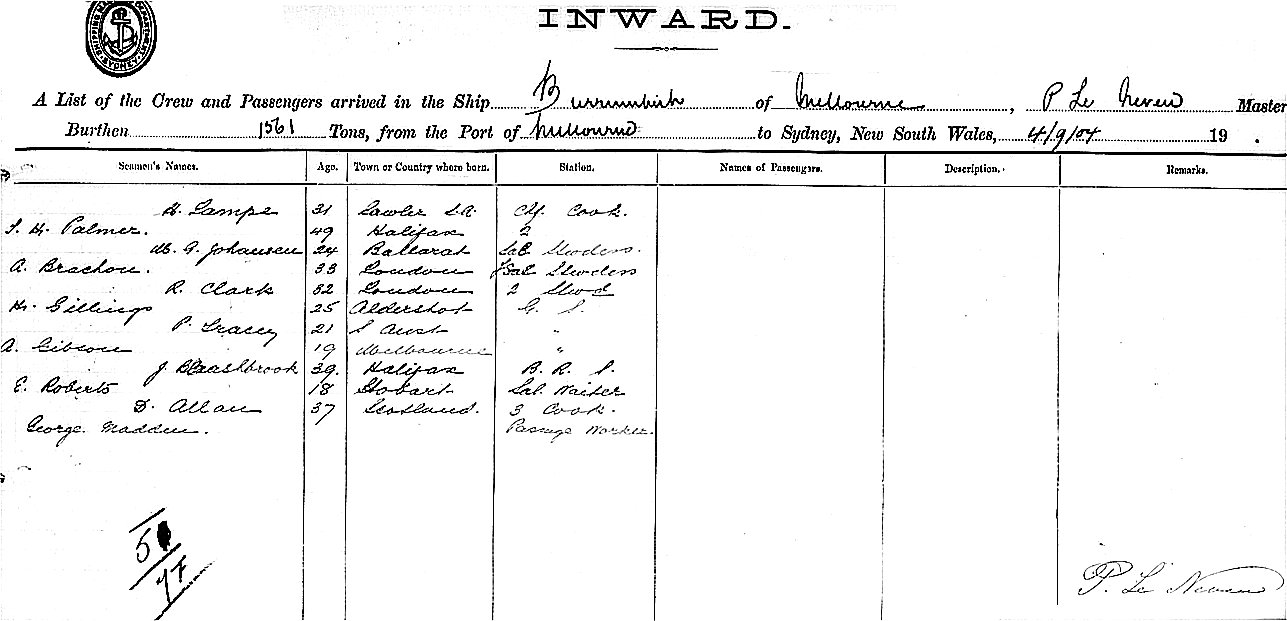 INWARD.
A List of the Crew and Passengers arrived in the Ship Burrumbeet of Melbourne, P Le Neveu Master
Burthen 1561 Tons, from the Port of Melbourne to Sydney, New South Wales, 4/9/04 19 .
Seamen's Names. Age. Town or Country where born. Station. Names of Passengers. Description. Remarks.
H. Lampe 31 Gawler S.A. Cf. Cook.
J. H. Palmer. 49 Halifax 2
M. G. Johansen 24 Ballarat Sal Stwdess.
A. Brachou. 33 London Sal Stwdess
R. Clark 32 London 2 Stwd
H. Gillings 25 Aldershot G. S.
P. Tracey 21 S Aust "
A. Gibson 19 Melbourne "
J Brashbrook 39. Halifax B. R. S.
E. Roberts 18 Hobart Sal. Waiter
D. Allan 37 Scotland. 3 Cook.
George Madden. Passage Worker.
P. Le Neveu